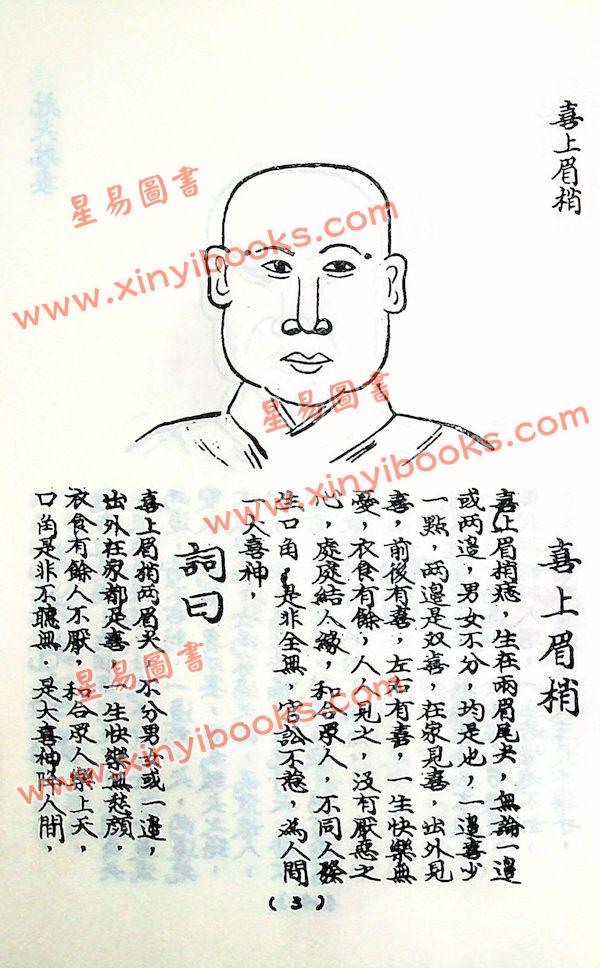 喜上眉梢
星易圖書
www.xinyibooks.com
星易圖書
www.xinyibooks.com
喜上眉梢
喜上眉梢痣，生在兩眉尾尖，無論一邊
或两邊，男女不分，均是也，一邊喜少
一點，两邊是双喜，在家見喜，出外見
喜，前後有喜，左右有喜，一生快樂無
憂，衣食有餘，人人見之，沒有厭惡之
心，處處結人緣，和合眾人，不同人發
生口角，是非全無，官訟不惹，為人間
一大喜神，
詞曰
喜上眉梢两眉尖，不分男女或一邊，
出外在家都是喜，一生快樂無愁顏，
衣食有餘人不厭，和合眾人樂上天，
口角是非不聽無．是大喜神人間，
星易圖書
www.xinyibooks.com
(3)